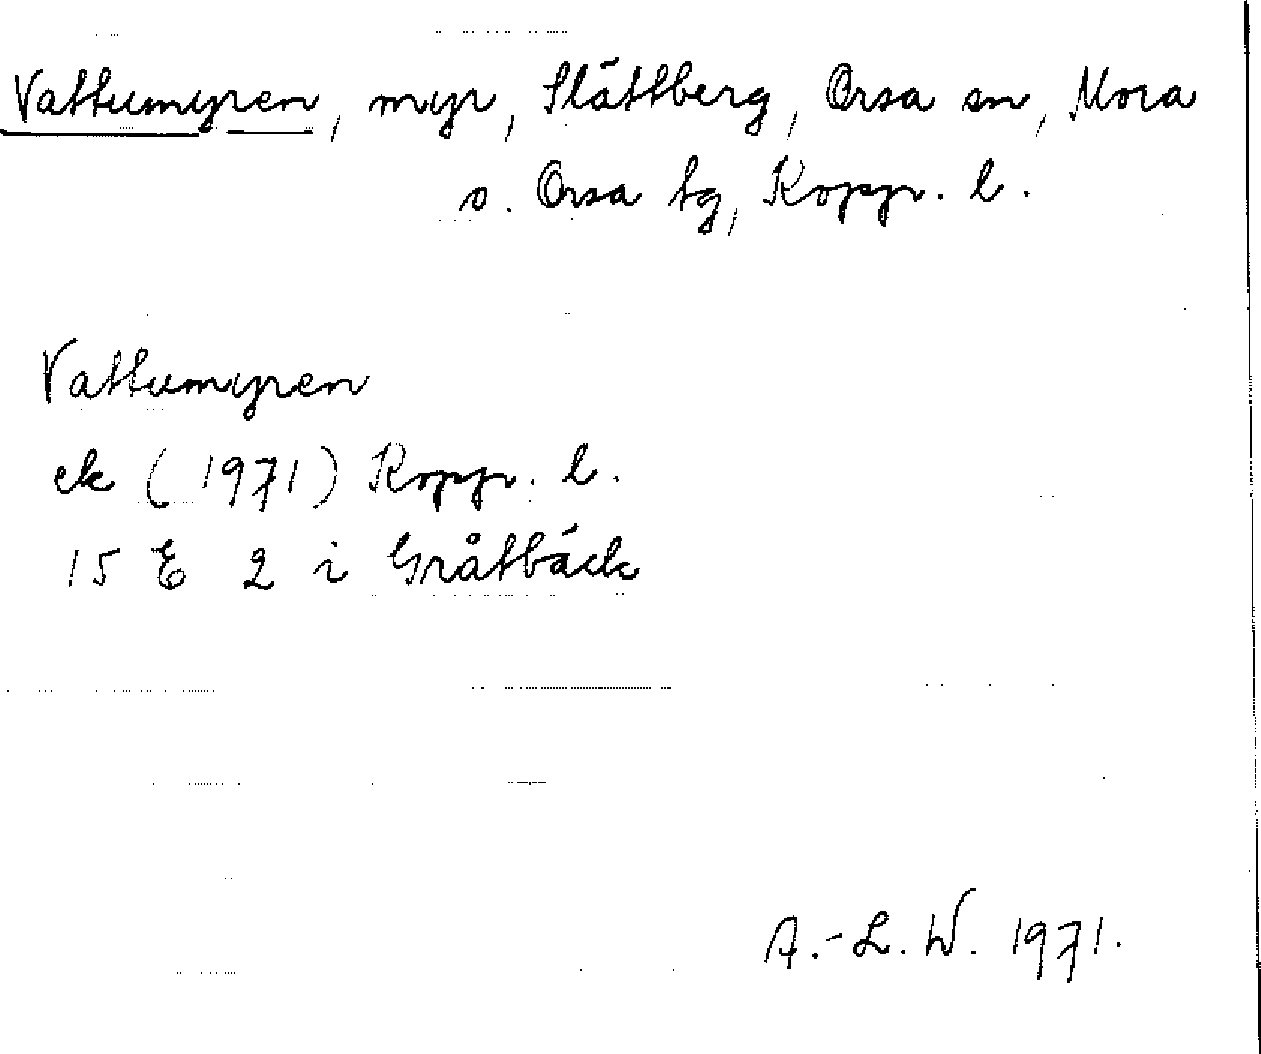 Vattumyren, myr, Slättberg, Orsa sn, Mora
o. Orsa tg, Koppr. l.
Vattumyren
ek (1971) Koppr. l.
15 E 2 i Gråtbäck
A.-L. W. 1971.